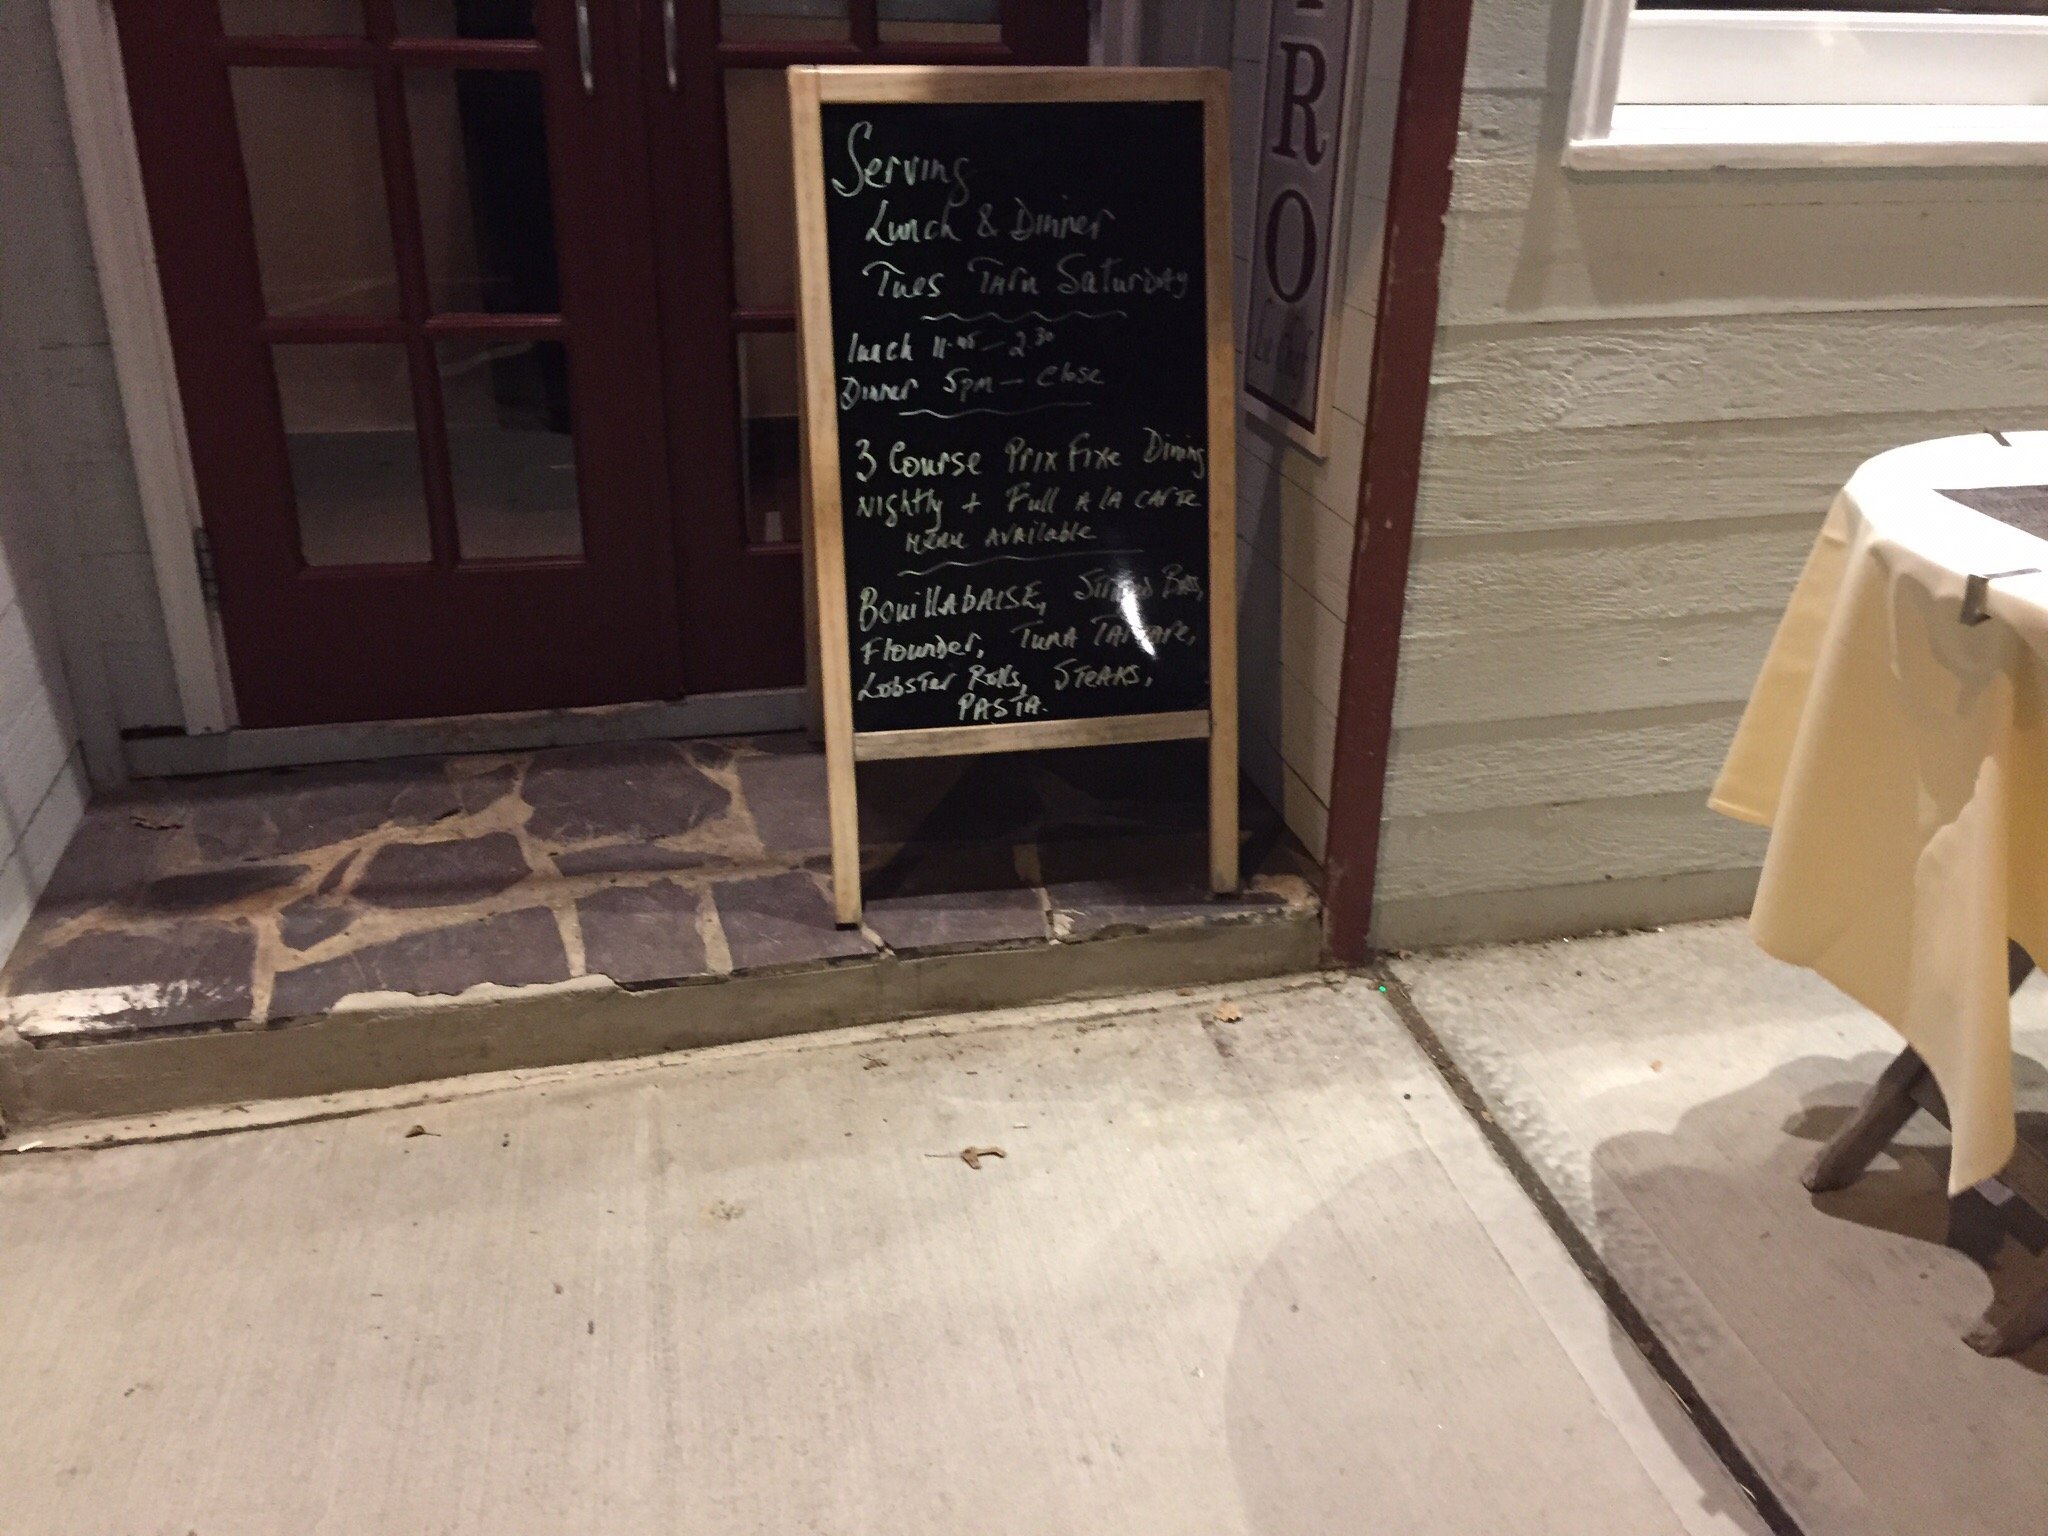 Serving
Lunch & Dinner
Tues Thru Saturday
lunch 11.45 - 2.30
Dinner 5pm - Close
3 Course Prix Fixe Dining
Nightly + Full A LA CARTE
MENU AVAILABLE
BouillABAISE, Striped Bass,
Flounder, TUNA TARTARE,
Lobster Rolls, STEAKS,
PASTA.
RO